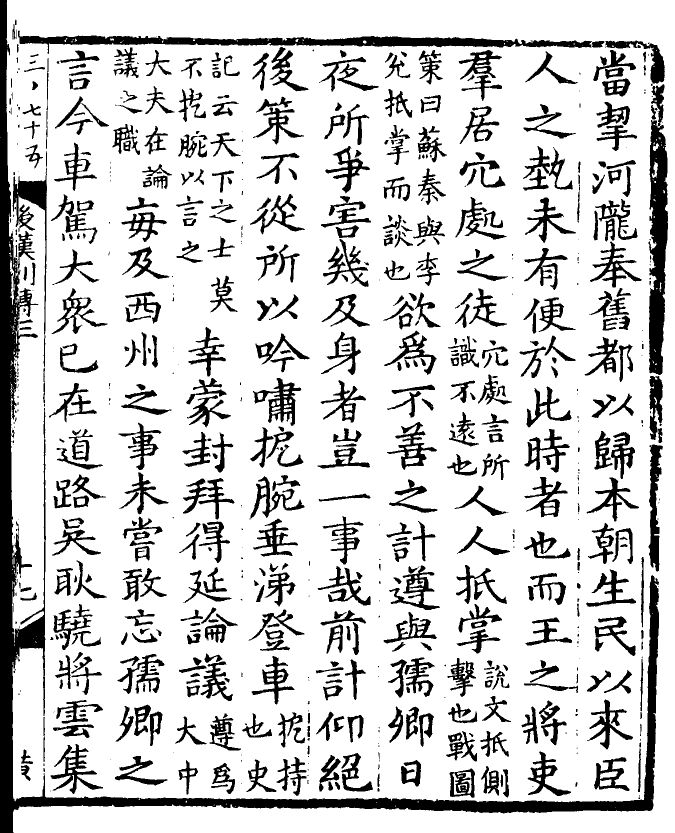 當挈河隴奉舊都以歸本朝生民以來臣
人之埶未有便於此時者也而王之將吏
羣居穴處之徒穴處言所識不遠也人人抵掌說文抵側擊也戰圖
策曰蘇秦與李兊抵掌而談也欲爲不善之計遵與孺卿日
夜所爭害幾及身者豈一事哉前計仰絕
後策不從所以吟嘯扼腕垂涕登車扼持也史
記云天下之士莫不扼腕以言之幸蒙封拜得延論議遵爲大中
大夫在論議之職毎及西州之事未嘗敢忘孺卿之
言今車駕大衆已在道路吳耿驍將雲集
三、七十五
後漢列傳三
十七